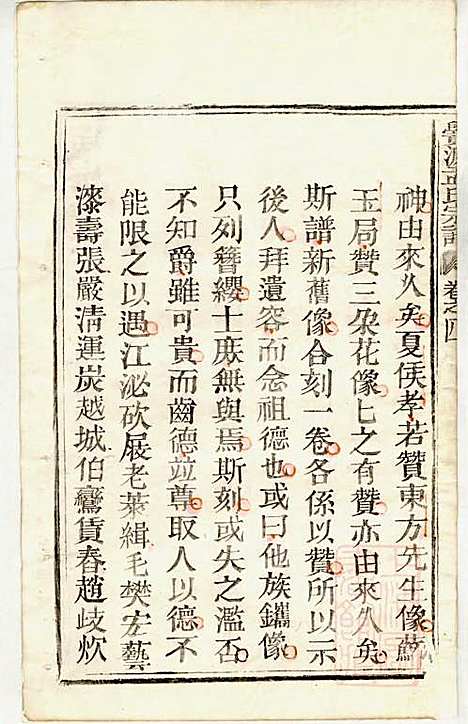 神由來久矣夏侯孝若贊東方先生像蘇
玉局贊三朵花像七之有贊亦由來久矣
斯譜新舊像合刻一卷各係以贊所以示
後人拜遺容而念祖德也或曰他族鑴像
只列簪纓士庶無與焉斯刻或失之濫否
不知爵雖可貴而齒德竝尊取人以德不
能限之以遇江泌砍屐老萊緝毛樊宏藝
漆壽張嚴清運炭越城伯鸞賃舂趙歧炊
氏宗譜
卷之四